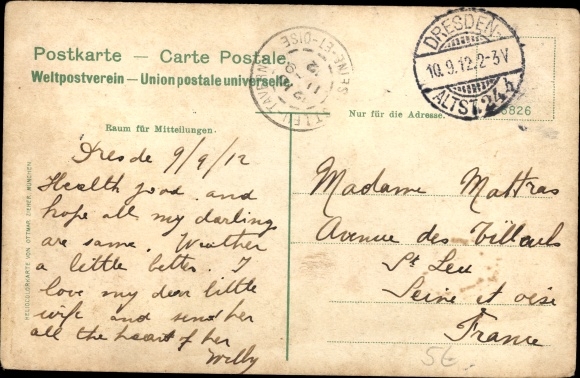 Postkarte — Carte Postale.
Weltpostverein — Union postale universelle.
Raum für Mitteilungen.
Dresde 9/9/12
Health good and
hope all my darlings
are same. Weather
a little better. I
love my dear little
wife and send her
all the heart of her
Willy
HELIOCOLORKARTE VON OTTMAR ZIEHER, MÜNCHEN
SEINE-ET-OISE
12
DRESDEN-
10.9.12.2-3V
ALTST.24 h
Nur für die Adresse.
6826
Madame Mattras
Avenue des Tilleuls
St Leu
Seine et oise
France